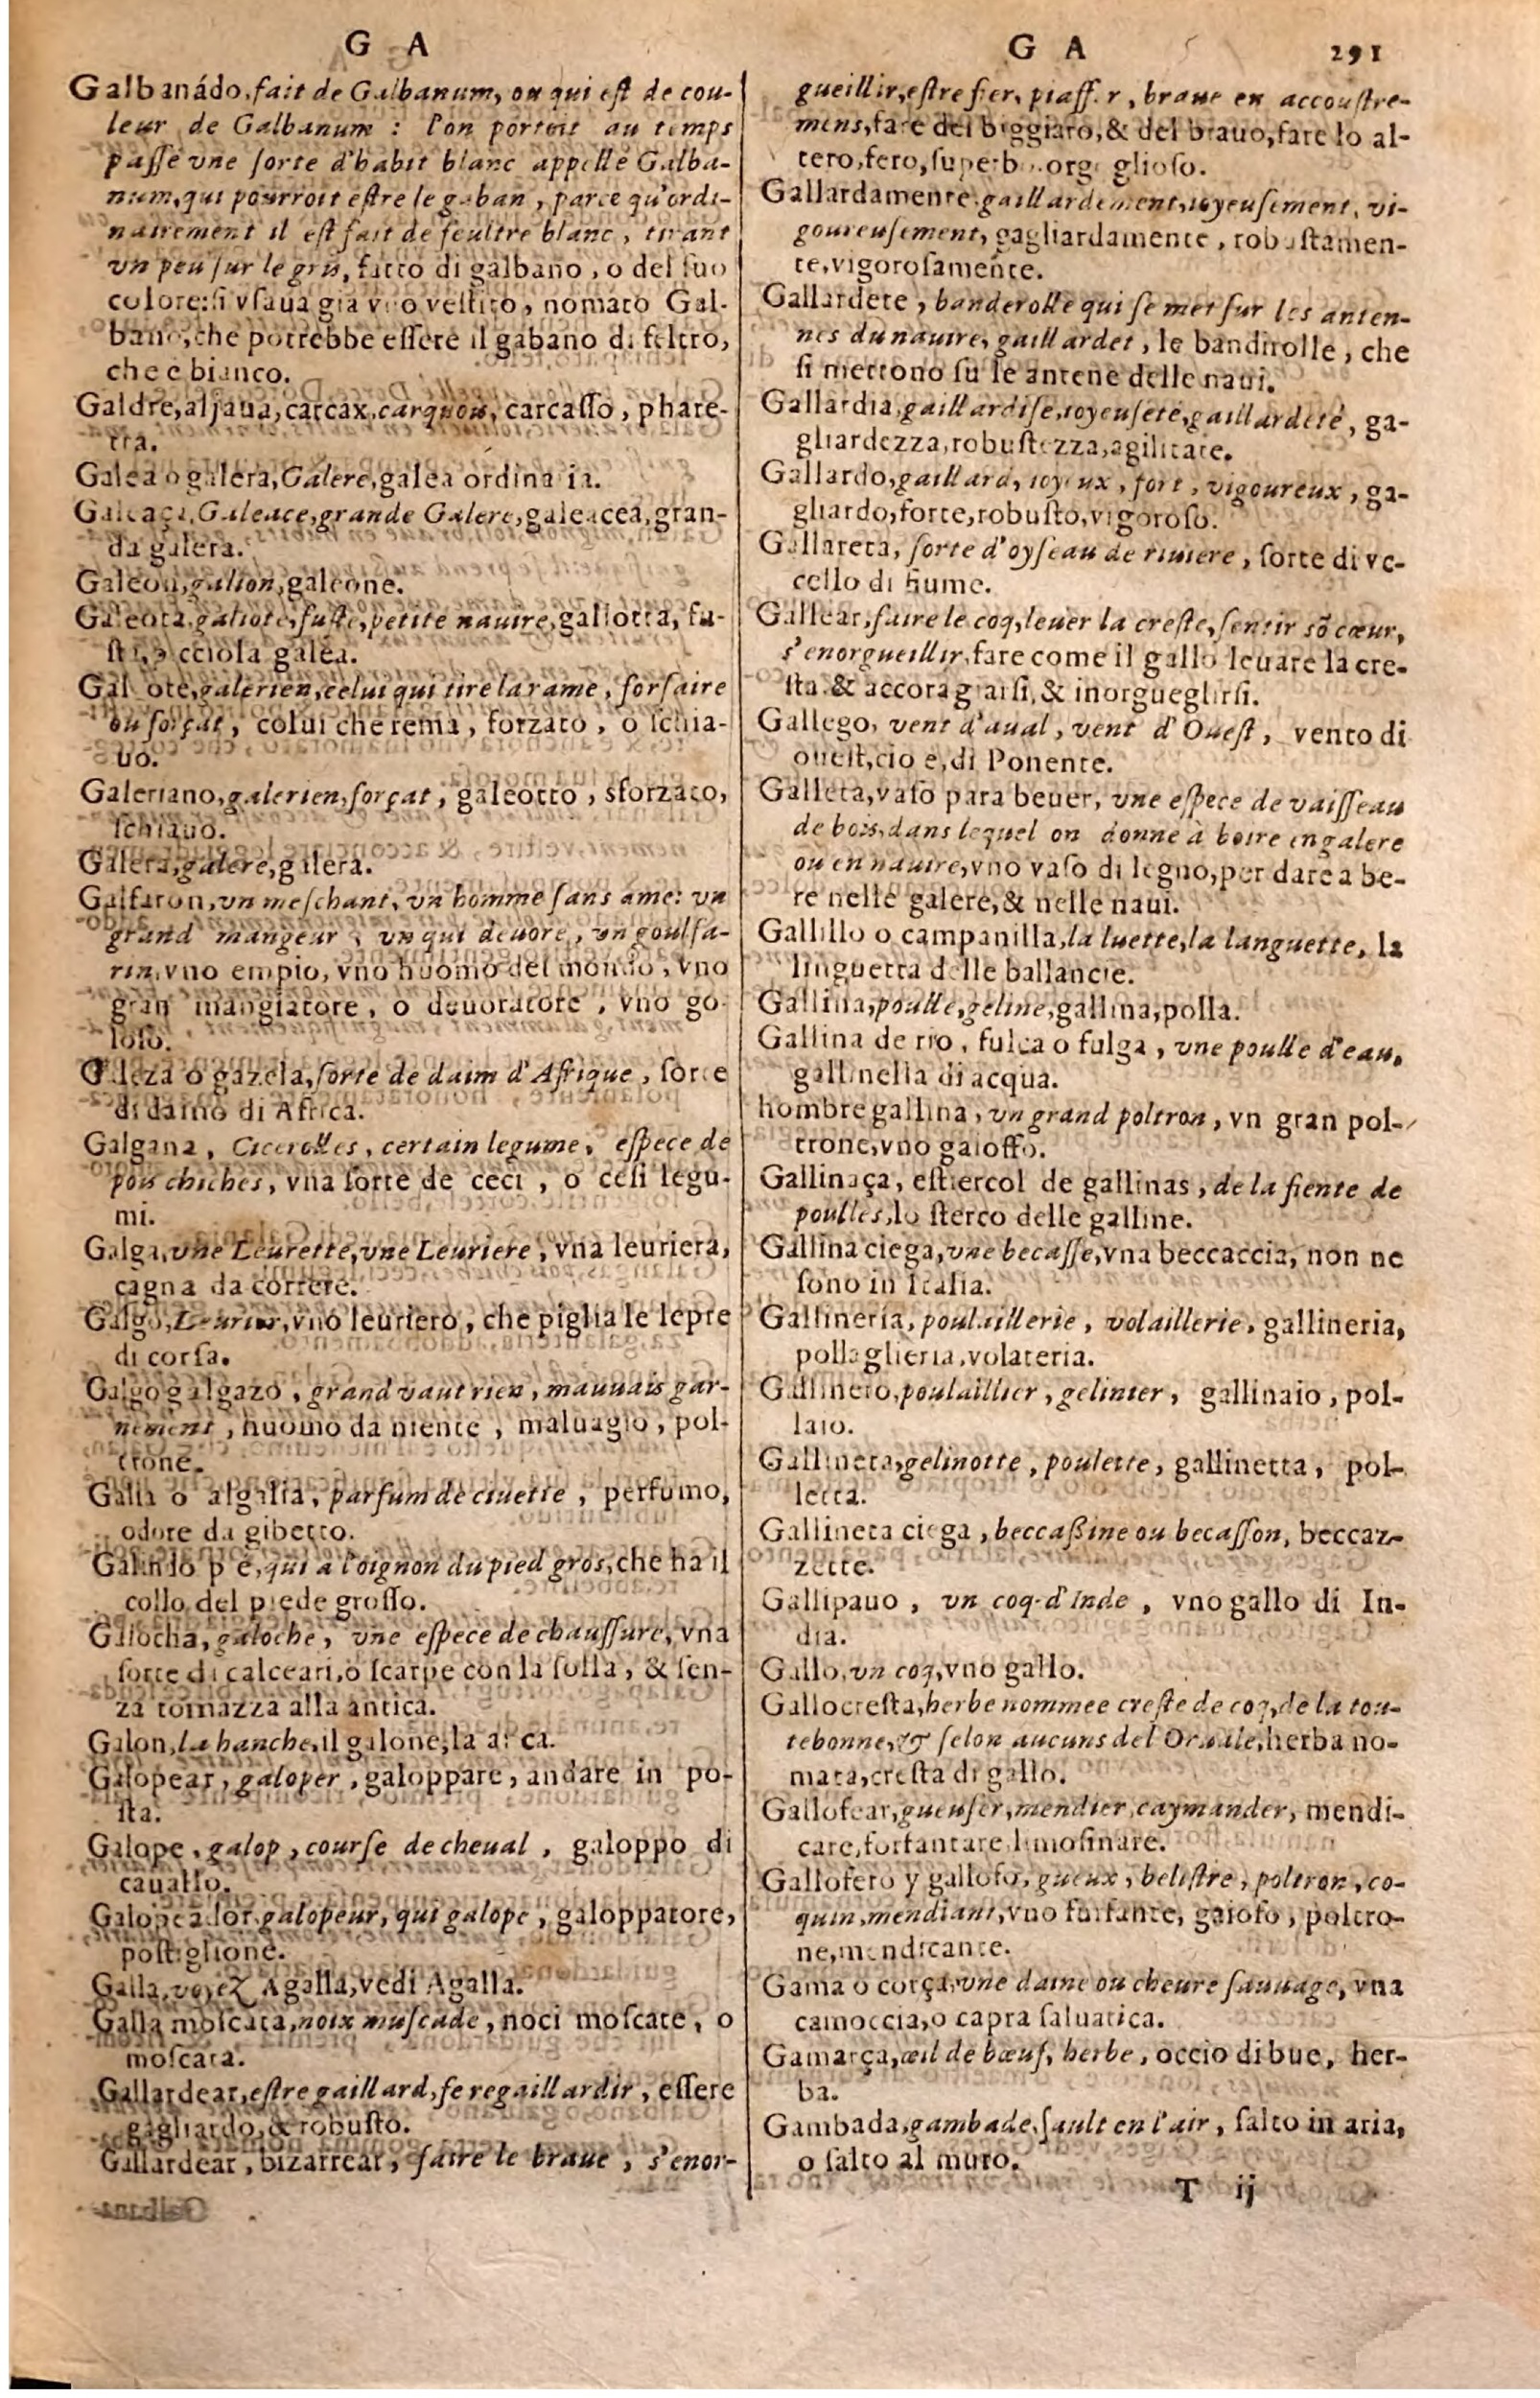 G A
Galbanádo, fait de Galbanum, ou qui est de cou-
leur de Galbanum : l'on portoit au temps
passé vne sorte d'habit blanc appellé Galba-
num, qui pourroit estre le gaban, parce qu'ordi-
nairement il est fait de feultre blanc, tirant
vn peu sur le gris, fatto di galbano, o del suo
colore: si vsaua gia vno vestito, nomato Gal-
bano, che potrebbe essere il gabano di feltro,
che e bianco.
Galdre, aljaua, carcax, carquou, carcasso, phare-
tra.
Galea o galera, Galere, galea ordinaria.
Galeaça, Galeace, grande Galere, galeacea, gran-
da galera.
Galeon, galion, galeone.
Galeota, galiote, fuste, petite nauire, galiotta, fu-
sta, cciola galea.
Galeote, galerien, celui qui tire la rame, forsaire
ou forçat, colui che rema, forzato, o schia-
uo.
Galeriano, galerien, forçat, galeotto, sforzato,
schiauo.
Galera, galere, galera.
Galfaron, vn meschant, vn homme sans ame: vn
grand mangeur, vn qui deuore, vn goulfa-
rin, vno empio, vno huomo del mondo, vno
gran mangiatore, o deuoratore, vno go-
loso.
Galeza o gazela, sorte de daim d'Afrique, sorte
di daino di Africa.
Galgana, Cicerolles, certain legume, espece de
pois chiches, vna sorte de ceci, o cesi legu-
mi.
Galga, vne Leurette, vne Leuriere, vna leuriera,
cagna da correre.
Galgo, Leurier, vno leuriero, che piglia le lepre
di corsa.
Galgo galgazo, grand vaut rien, mauuais gar-
nement, huomo da niente, maluagio, pol-
trone.
Galia o algalia, parfum de ciuette, perfumo,
odore da gibetto.
Galindo pie, qui a l'oignon du pied gros, che ha il
collo del piede grosso.
Galocha, galoche, vne espece de chaussure, vna
sorte di calceari, o scarpe con la solla, & sen-
za tomazza alla antica.
Galon, la hanche, il galone, la anca.
Galopear, galoper, galoppare, andare in po-
sta.
Galope, galop, course de cheual, galoppo di
cauallo.
Galopeador, galopeur, qui galope, galoppatore,
postiglione.
Galla, voyez Agalla, vedi Agalla.
Galla moscata, noix muscade, noci moscate, o
moscata.
Gallardear, estre gaillard, se regaillardir, essere
gagliardo, & robusto.
Gallardear, bizarrear, faire le braue, s'enor-
G A 291
gueillir, estre fier, piaffer, braue en accoustre-
mens, fare del biggiaro, & del brauo, fare lo al-
tero, fero, superbo, orgoglioso.
Gallardamente, gaillardement, ioyeusement, vi-
goureusement, gagliardamente, robustamen-
te, vigorosamente.
Gallardete, banderolle qui se met sur les anten-
nes du nauire, gaillardet, le bandirolle, che
si mettono su le antene delle naui.
Gallardia, gaillardise, ioyeuseté, gaillardeté, ga-
gliardezza, robustezza, agilitate.
Gallardo, gaillard, ioyeux, fort, vigoureux, ga-
gliardo, forte, robusto, vigoroso.
Gallareta, sorte d'oyseau de riuiere, sorte di vc-
cello di fiume.
Gallear, faire le coq, leuer la creste, sentir sõ cœur,
s'enorgueillir, fare come il gallo leuare la cre-
sta & accoragiarsi, & inorgueglirsi.
Gallego, vent d'aual, vent d'Ouest, vento di
ouest, cio e, di Ponente.
Galleta, vaso para beuer, vne espece de vaisseau
de bois, dans lequel on donne à boire en galere
ou en nauire, vno vaso di legno, per dare a be-
re nelle galere, & nelle naui.
Gallillo o campanilla, la luette, la languette, la
linguetta delle ballancie.
Gallina, poulle, geline, gallina, polla.
Gallina de rio, fulca o fulga, vne poulle d'eau,
gallinella di acqua.
hombre gallina, vn grand poltron, vn gran pol-
trone, vno gaioffo.
Gallinaça, estiercol de gallinas, de la fiente de
poulles, lo sterco delle galline.
Gallina ciega, vne becasse, vna beccaccia, non ne
sono in Italia.
Gallineria, poulaillerie, volaillerie, gallineria,
pollaglieria, volateria.
Gallinero, poulaillier, gelinier, gallinaio, pol-
laio.
Gallineta, gelinotte, poulette, gallinetta, pol-
letta.
Gallineta ciega, beccaßine ou becasson, beccaz-
zette.
Gallipauo, vn coq-d'Inde, vno gallo di In-
dia.
Gallo, vn coq, vno gallo.
Gallocresta, herbe nommee creste de coq, de la tou-
tebonne, & selon aucuns del Oruale, herba no-
mata, cresta di gallo.
Gallofear, gueuser, mendier, caymander, mendi-
care, forfantare, limosinare.
Gallofero y gallofo, gueux, belistre, poltron, co-
quin, mendiant, vno furfante, gaiofo, poltro-
ne, mendicante.
Gama o corça, vne daine ou cheure sauuage, vna
camoccia, o capra saluatica.
Gamarça, œil de bœuf, herbe, occio di bue, her-
ba.
Gambada, gambade, sault en l'air, salto in aria,
o salto al muro.
T ij